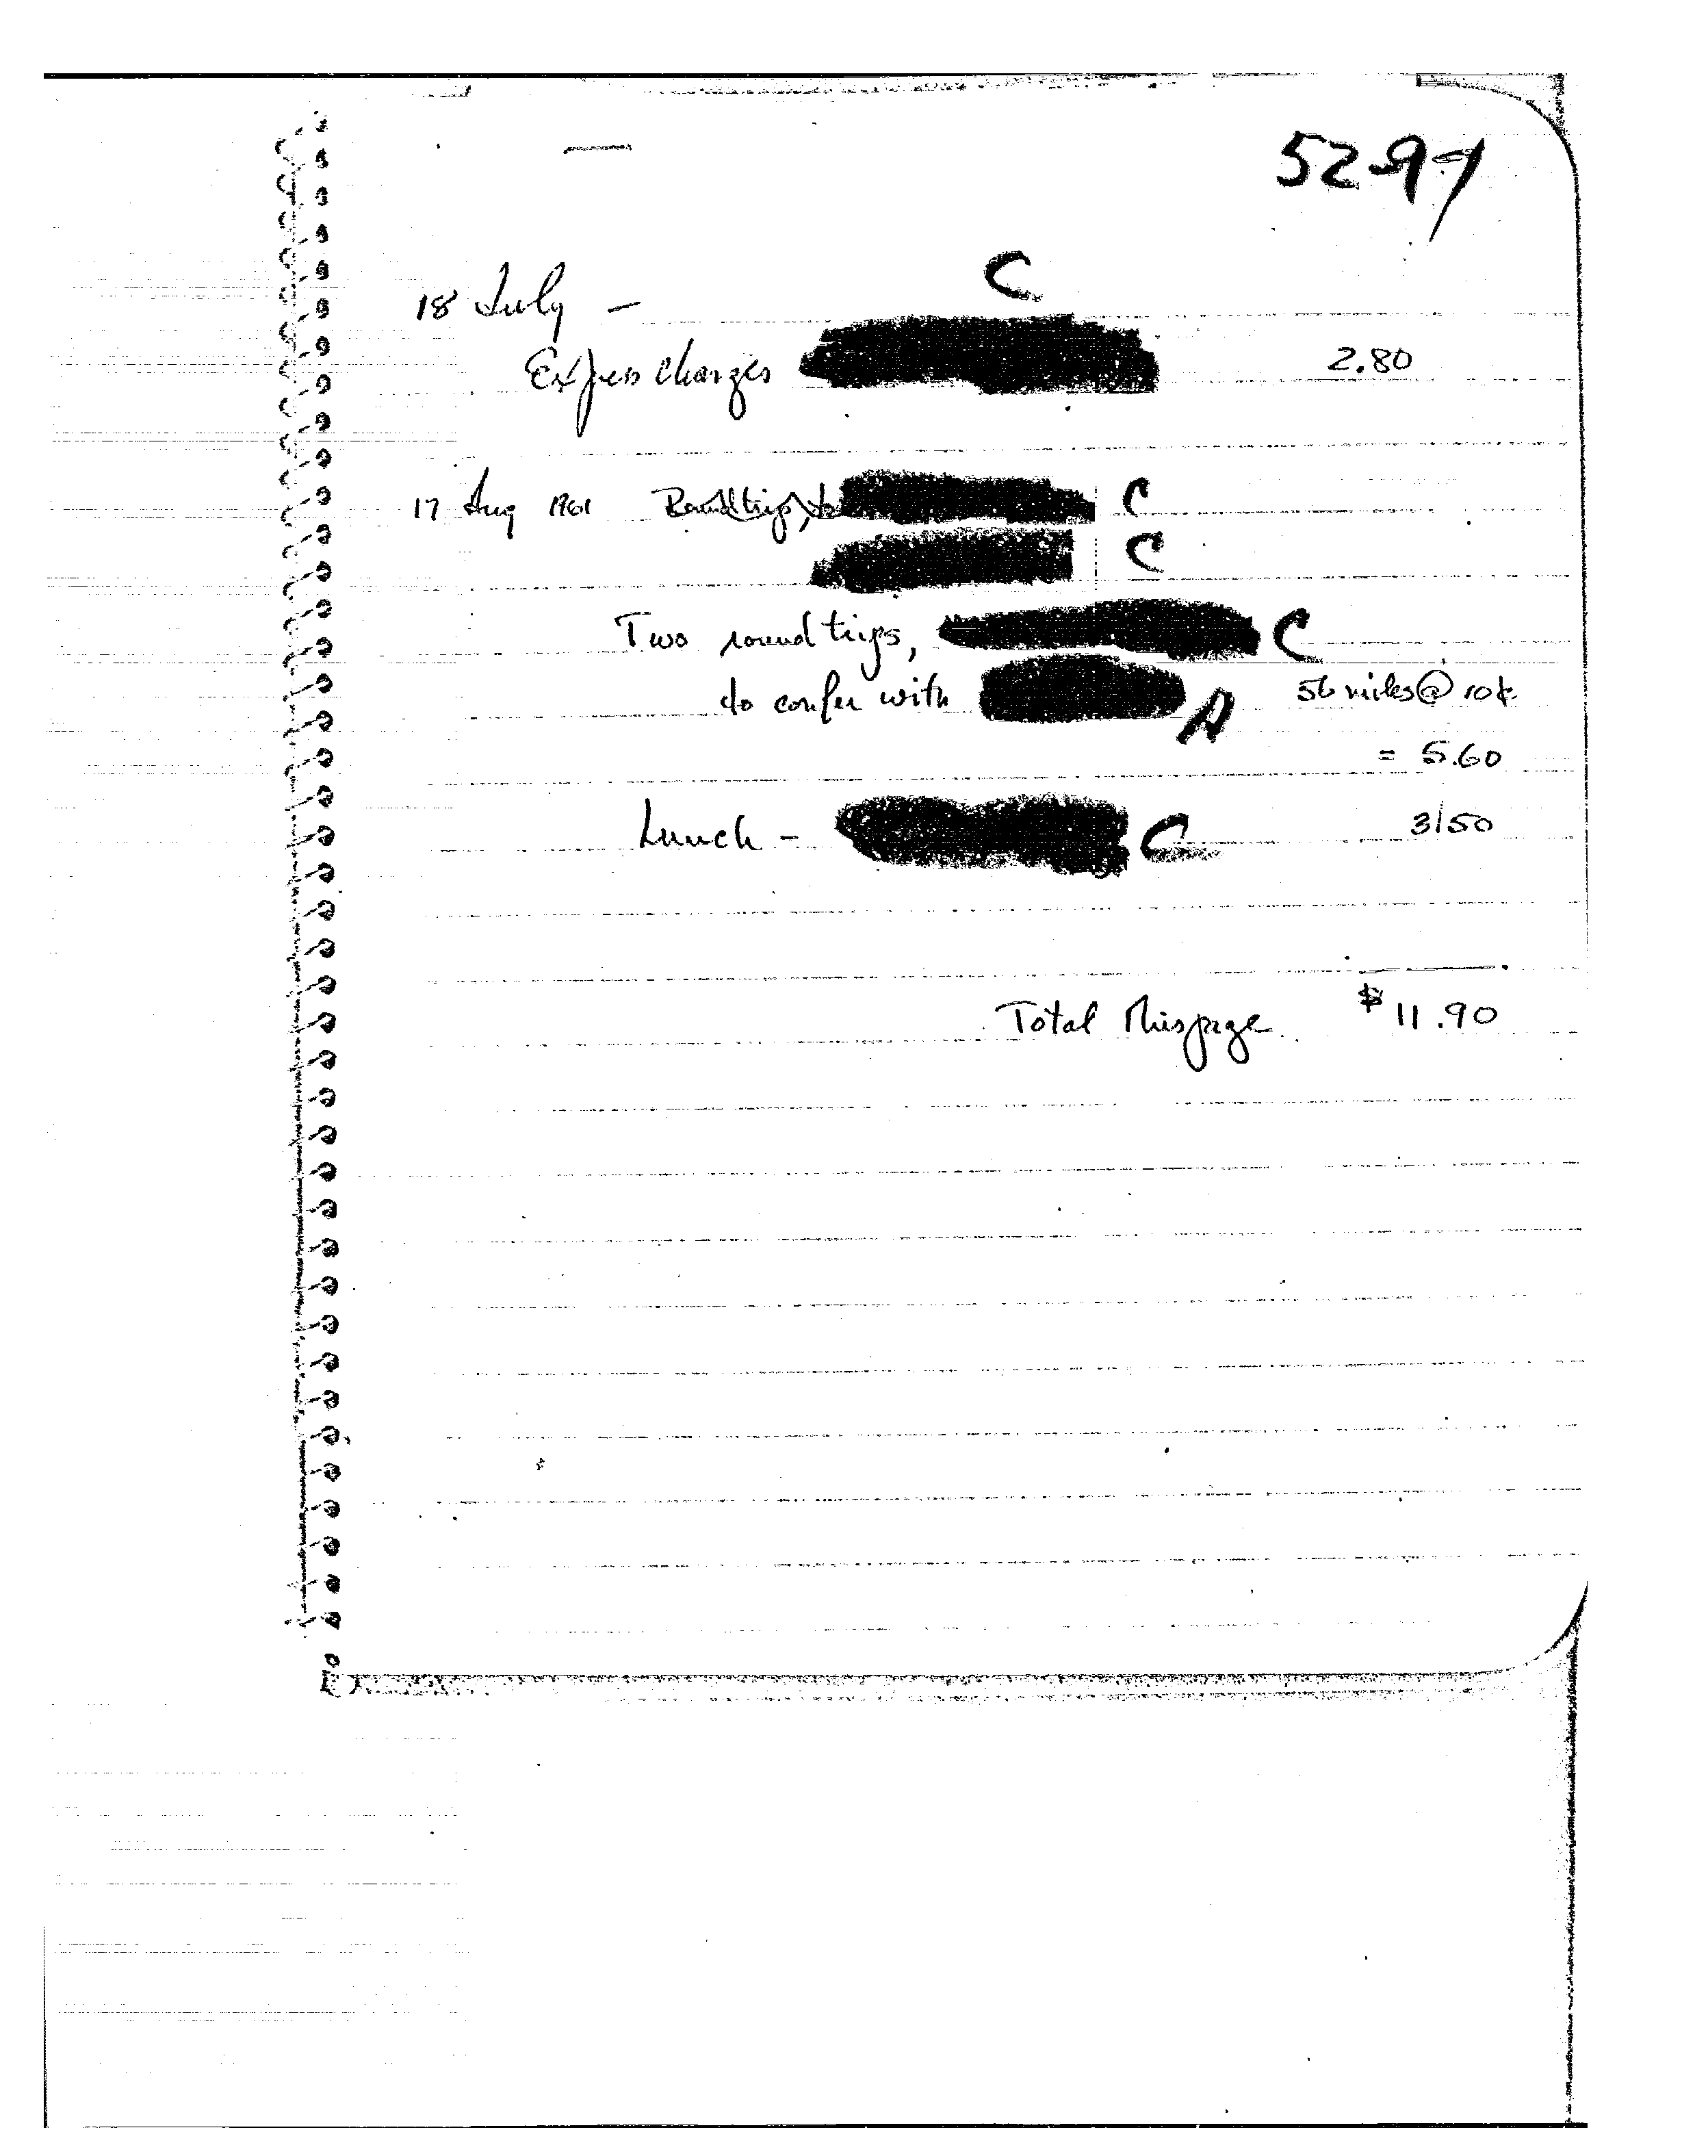 52-91
C
18 July -
Express charges 2.80
17 Aug 1961 Roundtrip, to C
C
Two round trips, C
to confer with A 56 miles @ 10¢
= 5.60
Lunch - C 3.50
Total this page $11.90